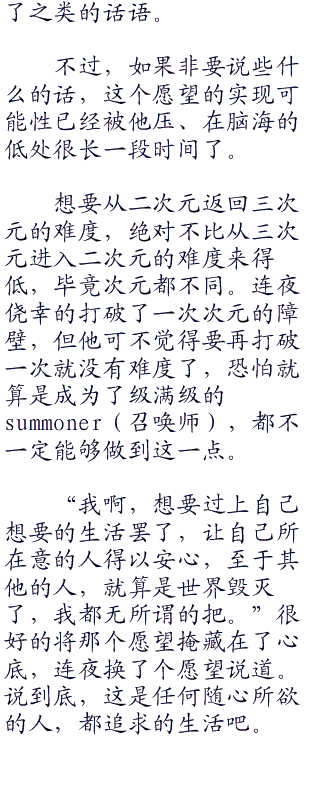 了之类的话语。
不过，如果非要说些什
么的话，这个愿望的实现可
能性已经被他压、在脑海的
低处很长一段时间了。
想要从二次元返回三次
元的难度，绝对不比从三次
元进入二次元的难度来得
低，毕竟次元都不同。连夜
侥幸的打破了一次次元的障
壁，但他可不觉得要再打破
一次就没有难度了，恐怕就
算是成为了级满级的
summoner（召唤师），都不
一定能够做到这一点。
“我啊，想要过上自己
想要的生活罢了，让自己所
在意的人得以安心，至于其
他的人，就算是世界毁灭
了，我都无所谓的把。”很
好的将那个愿望掩藏在了心
底，连夜换了个愿望说道。
说到底，这是任何随心所欲
的人，都追求的生活吧。